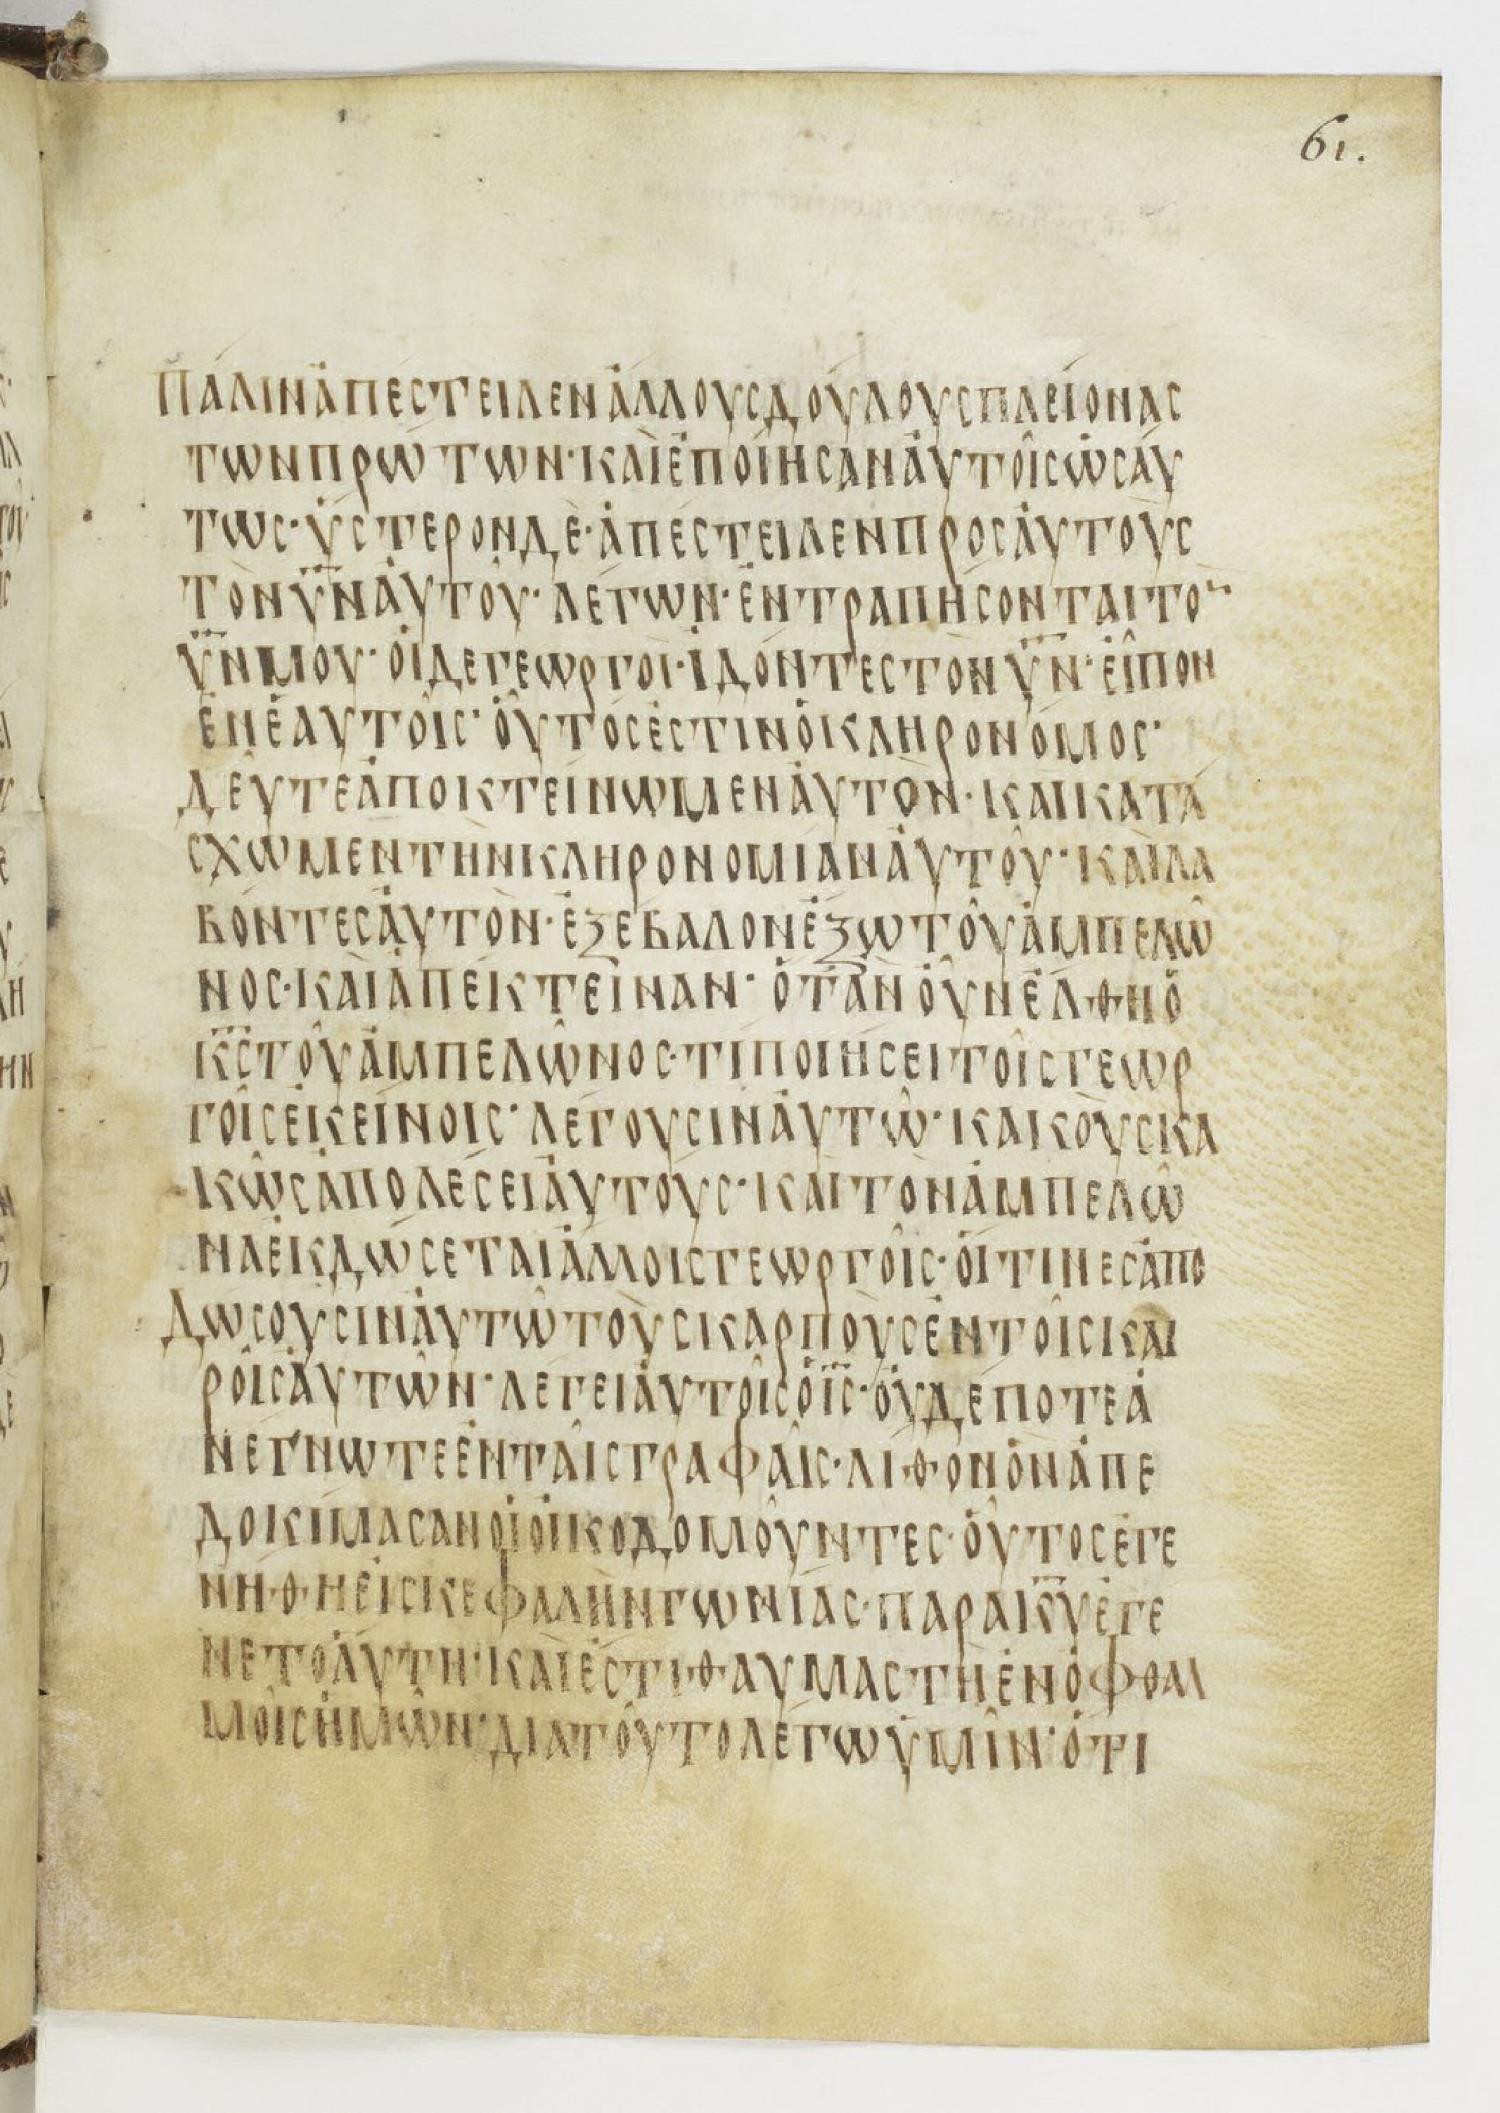 61.
ΠάλινἀπέστειλενἄλλουςΔούλουςπλείονας
τῶνπρώτων·καὶἐποίησαναὐτοῖςὡσάυ
τως·ὕστερονδὲ·ἀπέστειλενπρὸςἀυτοὺς
τὸνῡ̈ν̄ἀυτοῦ·λέγων·ἐντραπήσονταιτὸ̄
ῡ̈ν̄μου·ὁιδεγεωργοὶ·ἰδόντεςτὸνῡ̈ν̄·ἐῖπον
ἐνἑαυτοῖς·ὅυτόςἐστινὁκληρονόμος·
δεῦτεἀποκτείνωμενἀυτὸν·καὶκατά
σχωμεντὴνκληρονομίανἀυτοῦ·καὶλα
βόντεςἀυτὸν·ἐξέβαλονἔξωτοῦἀμπελῶ
νος·καὶἀπέκτειναν·ὅτἀνὀῦνἔλθηὁ
κ̄ς̄τοῦἀμπελῶνος·τίποιήσειτοῖςγεωρ
γοῖςἐκείνοις·λέγουσινἀυτῶ·κακοὺςκα
κῶςἀπολέσειἀυτούς·καὶτὸνἀμπελῶ
ναἐκδώσεταιἄλλοιςγεωργοῖς·ὅιτινεςἀπο
Δώσουσινἀυτῶτοὺςκαρποὺςἐντοῖςκαι
ροῖςἀυτῶν·λέγειἀυτοῖςὁῑ̈ς̄·ὀυδέποτεἀ
νέγνωτεἐνταῖςγραφαῖς·λίθονὃνἀπε
δοκίμασανὁιὀικοδομοῦντες·ὅυτοςἐγε
νήθηἐιςκεφαλὴνγωνίας·παρὰκ̄ῡἐγέ
νετοἄυτη·καὶἔστιθαυμαστὴἐνὀφθαλ
μοῖςἡμῶν·διατοῦτολέγωὑμῖν·ὅτι